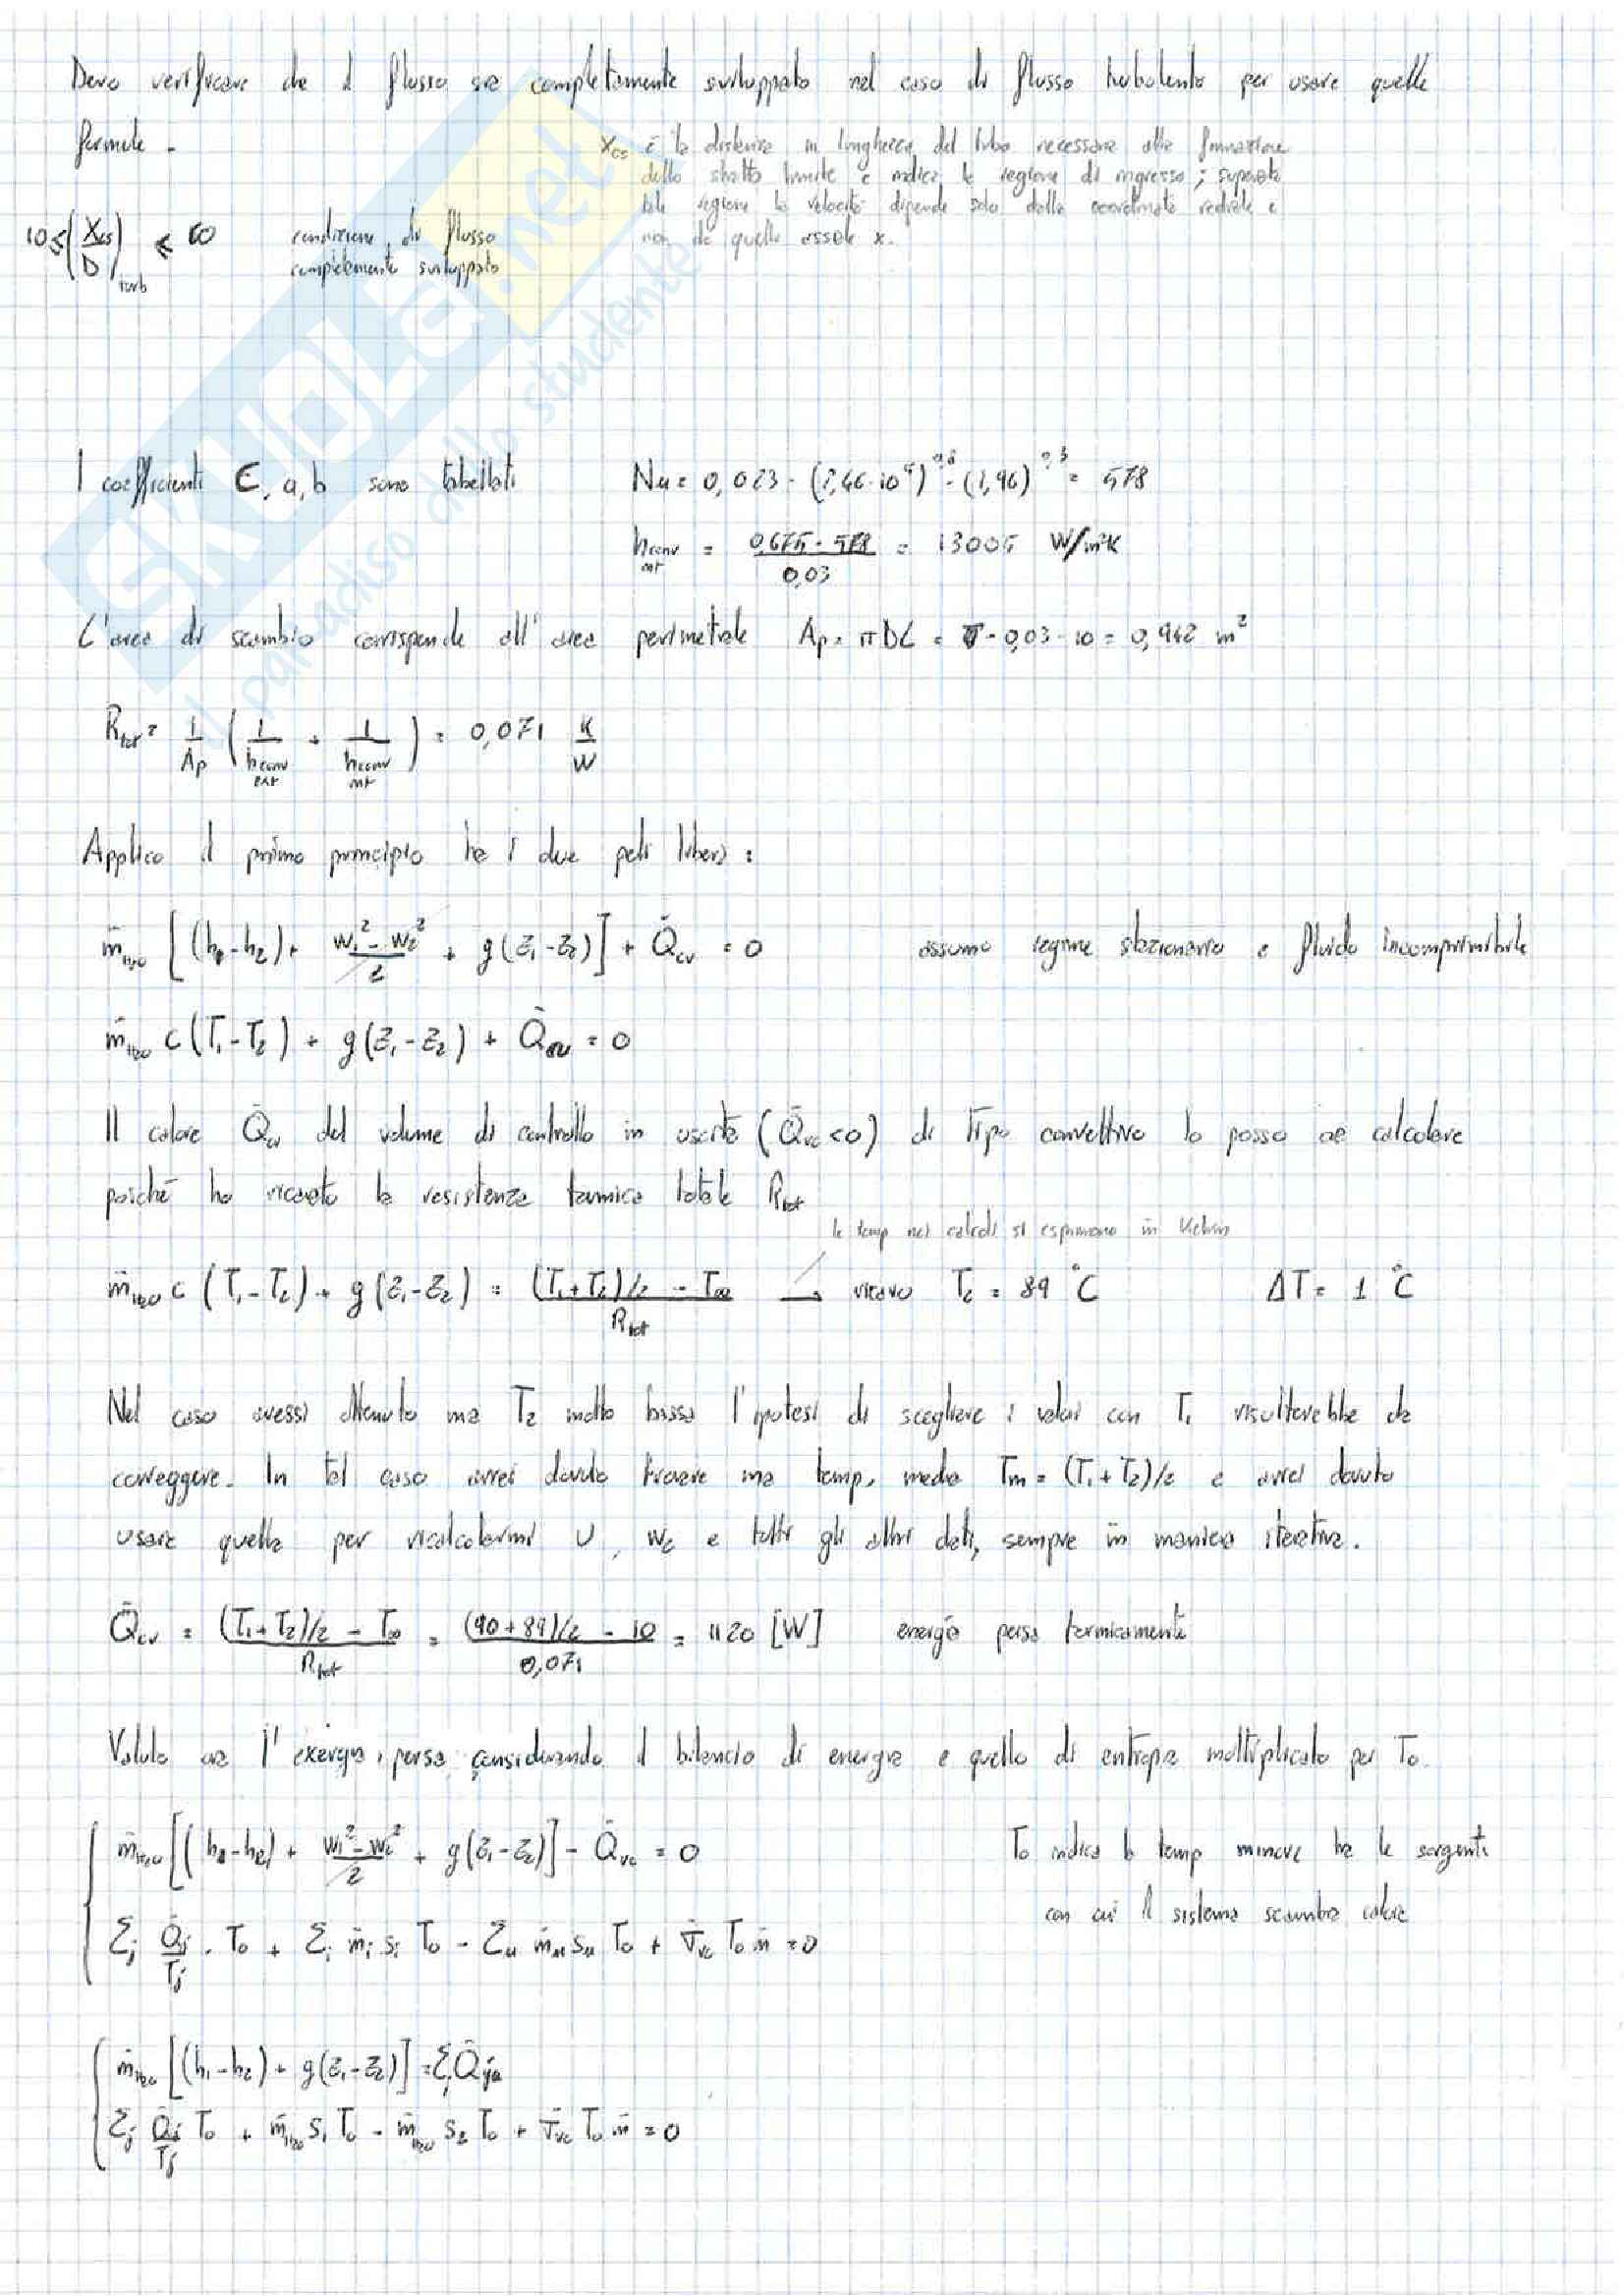 Devo verificare che il flusso sia completamente sviluppato nel caso di flusso turbolento per usare quelle
formule.
x_cs è la distanza in lunghezza del tubo necessaria alla formazione
dello strato limite e indica la regione di ingresso; superata
tale regione la velocità dipende solo dalla coordinata radiale e
non da quella assiale x.
10 ≤ (x_cs/D)_turb ≤ 60 condizione di flusso
completamente sviluppato
I coefficienti C, a, b sono tabellati Nu = 0,023 · (2,46·10⁵)^0,8 · (1,96)^0,3 = 578
h_conv int = 0,675 · 578 / 0,03 = 13005 W/m²K
L'area di scambio corrisponde all'area perimetrale Ap = πDL = π · 0,03 · 10 = 0,942 m²
R_tot = 1/Ap (1/h_conv est + 1/h_conv int) = 0,071 K/W
Applico il primo principio tra i due peli liberi:
ṁ_H2O [(h₁-h₂) + (w₁²-w₂²)/2 + g(z₁-z₂)] + Q̇_cv = 0 assumo regime stazionario e fluido incomprimibile
ṁ_H2O c(T₁-T₂) + g(z₁-z₂) + Q̇_cv = 0
Il calore Q̇_cv del volume di controllo in uscita (Q̇_vc<0) di tipo convettivo lo posso calcolare
poiché ho ricavato la resistenza termica totale R_tot
le temp nei calcoli si esprimono in Kelvin
ṁ_H2O c (T₁-T₂) + g(z₁-z₂) = ((T₁+T₂)/2 - T∞)/R_tot → ricavo T₂ = 89 °C ΔT = 1 °C
Nel caso avessi ottenuto una T₂ molto bassa l'ipotesi di scegliere i valori con T₁ risulterebbe da
correggere. In tal caso avrei dovuto trovare una temp. media Tm = (T₁+T₂)/2 e avrei dovuto
usare quella per ricalcolarmi υ, w₂ e tutti gli altri dati, sempre in maniera iterativa.
Q̇_cv = ((T₁+T₂)/2 - T∞)/R_tot = ((90+89)/2 - 10)/0,071 = 1120 [W] energia persa termicamente
Valuto ora l'exergia persa, considerando il bilancio di energia e quello di entropia moltiplicato per T₀.
ṁ_H2O [(h₁-h₂) + (w₁²-w₂²)/2 + g(z₁-z₂)] - Q̇_vc = 0 T₀ indica la temp minore tra le sorgenti
con cui il sistema scambia calore
Σj Q̇j/Tj · T₀ + Σi ṁi si T₀ - Σu ṁu su T₀ + σ̇_vc T₀ ṁ = 0
ṁ_H2O [(h₁-h₂) + g(z₁-z₂)] = Σj Q̇j
Σj Q̇j/Tj T₀ + ṁ_H2O s₁ T₀ - ṁ_H2O s₂ T₀ + σ̇_vc T₀ ṁ = 0
SKUOLA.net
il paradiso dello studente